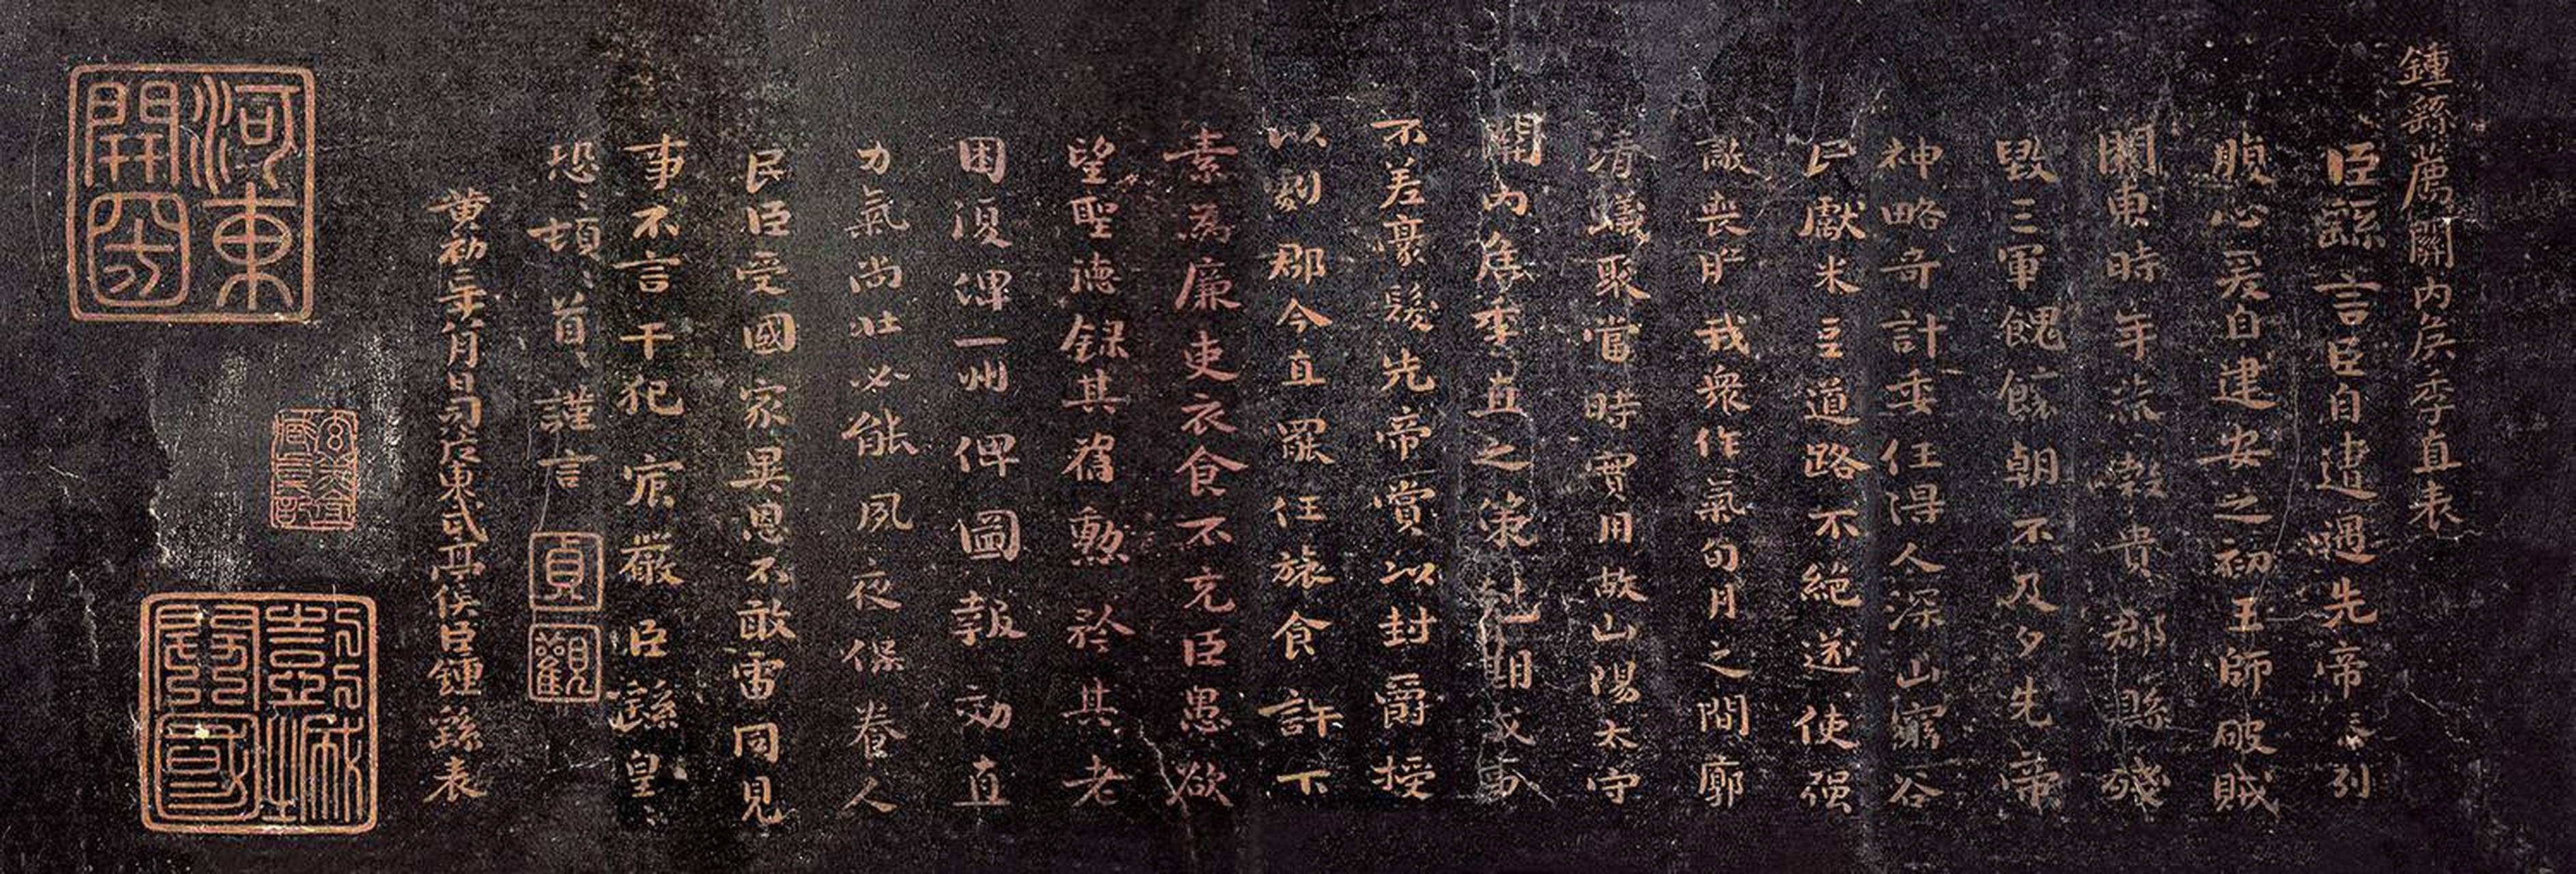 鍾繇薦關内侯季直表
臣繇言臣自遭遇先帝忝列
腹心爰自建安之初王師破賊
關東時年荒穀貴郡縣殘
毀三軍餽饟朝不及夕先帝
神略奇計委任得人深山窮谷
民獻米豆道路不絶遂使强
敵喪膽我衆作氣旬月之間廓
清蟻聚當時實用故山陽太守
關内侯季直之策尅期成事
不差豪髮先帝賞以封爵授
以劇郡今直罷任旅食許下
素爲廉吏衣食不充臣愚欲
望聖德録其舊勳矜其老
困復俾一州俾圖報効直
力氣尚壯必能夙夜保養人
民臣受國家異恩不敢雷同見
事不言干犯宸嚴臣繇皇〻
恐〻頓〻首〻謹言
黄初二年八月日司徒東武亭侯臣鍾繇表
貞
觀
河東
開国